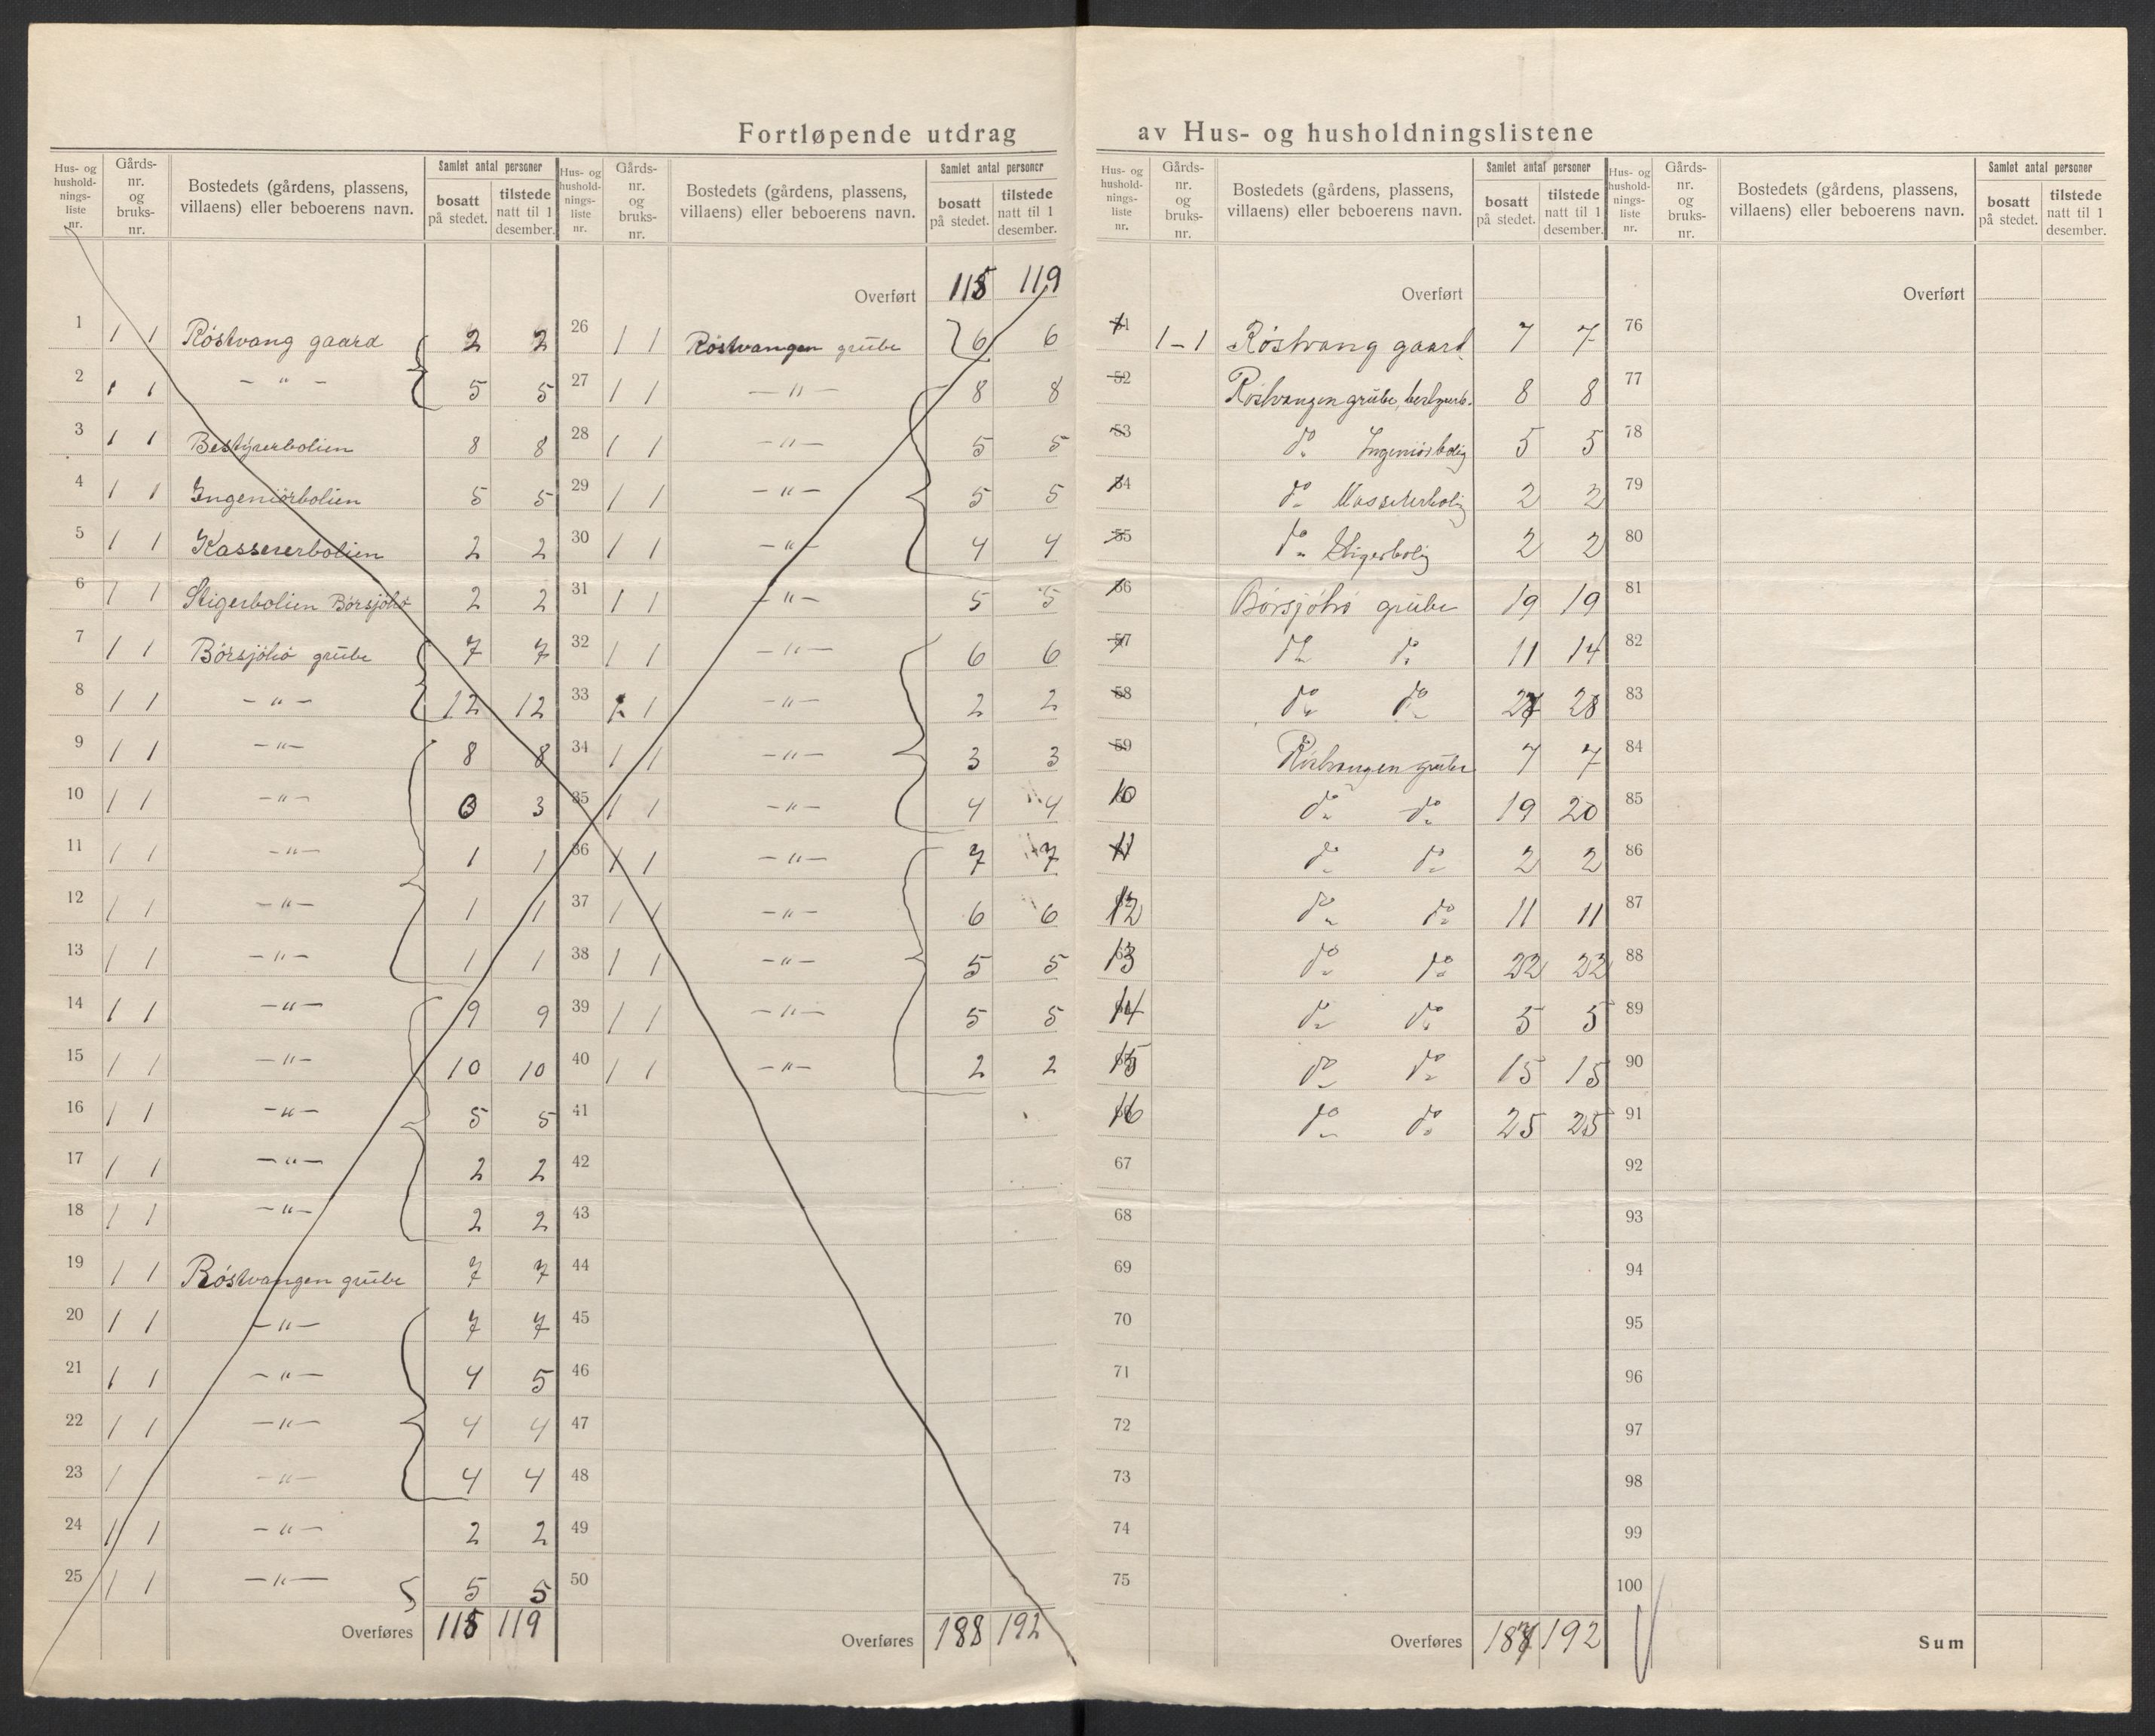 Fortløpende utdrag av Hus- og husholdningslistene
Hus- og hushold-nings-liste nr. | Gårds-nr. og bruks-nr. | Bostedets (gårdens, plassens, villaens) eller beboerens navn. | Samlet antal personer | bosatt på stedet. | tilstede natt til 1 desember.
1 | 1 1 | Röstvang gaard | 2 | 2
2 | 1 1 | - " - | 5 | 5
3 | 1 1 | Bestyrerbolien | 8 | 8
4 | 1 1 | Ingeniörbolien | 5 | 5
5 | 1 1 | Kassererbolien | 2 | 2
6 | 1 1 | Stigerbolien Börsjöhö | 2 | 2
7 | 1 1 | Börsjöhö grube | 7 | 7
8 | 1 1 | - " - | 12 | 12
9 | 1 1 | - " - | 8 | 8
10 | 1 1 | - " - | | 3
11 | 1 1 | - " - | 1 | 1
12 | 1 1 | - " - | 1 | 1
13 | 1 1 | - " - | 1 | 1
14 | 1 1 | - " - | 9 | 9
15 | 1 1 | - " - | 10 | 10
16 | 1 1 | - " - | 5 | 5
17 | 1 1 | - " - | 2 | 2
18 | 1 1 | - " - | 2 | 2
19 | 1 1 | Röstvangen grube | 7 | 7
20 | 1 1 | - " - | 7 | 7
21 | 1 1 | - " - | 4 | 5
22 | 1 1 | - " - | 4 | 4
23 | 1 | - " - | 4 | 4
24 | 1 1 | - " - | 2 | 2
25 | 1 1 | - " - | 5 5 | 5
Overføres | 115 | 119
Hus- og hushold-nings-liste nr. | Gårds-nr. og bruks-nr. | Bostedets (gårdens, plassens, villaens) eller beboerens navn. | Samlet antal personer | bosatt på stedet. | tilstede natt til 1 desember.
Overført | 115 | 119
26 | 1 1 | Röstvangen grube | 6 | 6
27 | 1 1 | - " - | 8 | 8
28 | 1 1 | - " - | 5 | 5
29 | 1 1 | - " - | 5 | 5
30 | 1 1 | - " - | 4 | 4
31 | 1 1 | - " - | 5 | 5
32 | 1 1 | - " - | 6 | 6
33 | 1 1 | - " - | 2 | 2
34 | 1 1 | - " - | 3 | 3
35 | 1 1 | - " - | 4 | 4
36 | 1 1 | - " - | 7 | 7
37 | 1 1 | - " - | 6 | 6
38 | 1 1 | - " - | 5 | 5
39 | 1 1 | - " - | 5 | 5
40 | 1 1 | - " - | 2 | 2
41
42
43
44
45
46
47
48
49
50
Overføres | 188 | 192
Hus- og hushold-nings-liste nr. | Gårds-nr. og bruks-nr. | Bostedets (gårdens, plassens, villaens) eller beboerens navn. | Samlet antal personer | bosatt på stedet. | tilstede natt til 1 desember.
Overført
51 | 1 - 1 | Röstvang gaard | 7 | 7
52 | Röstvangen grube, bestyrerb. | 8 | 8
53 | do Ingeniörbolig | 5 | 5
54 | do Kassererbolig | 2 | 2
55 | do Stigerbolig | 2 | 2
56 | Börsjöhö grube | 19 | 19
57 | do do | 11 | 14
58 | do do | 27 | 28
59 | Röstvangen grube | 7 | 7
10 | do do | 19 | 20
11 | do do | 2 | 2
12 | do do | 11 | 11
13 | do do | 22 | 22
14 | do do | 5 | 5
15 | do do | 15 | 15
16 | do do | 25 | 25
67
68
69
70
71
72
73
74
75
Overføres | 187 | 192
Hus- og hushold-nings-liste nr. | Gårds-nr. og bruks-nr. | Bostedets (gårdens, plassens, villaens) eller beboerens navn. | Samlet antal personer | bosatt på stedet. | tilstede natt til 1 desember.
Overført
76
77
78
79
80
81
82
83
84
85
86
87
88
89
90
91
92
93
94
95
96
97
98
99
100
Sum